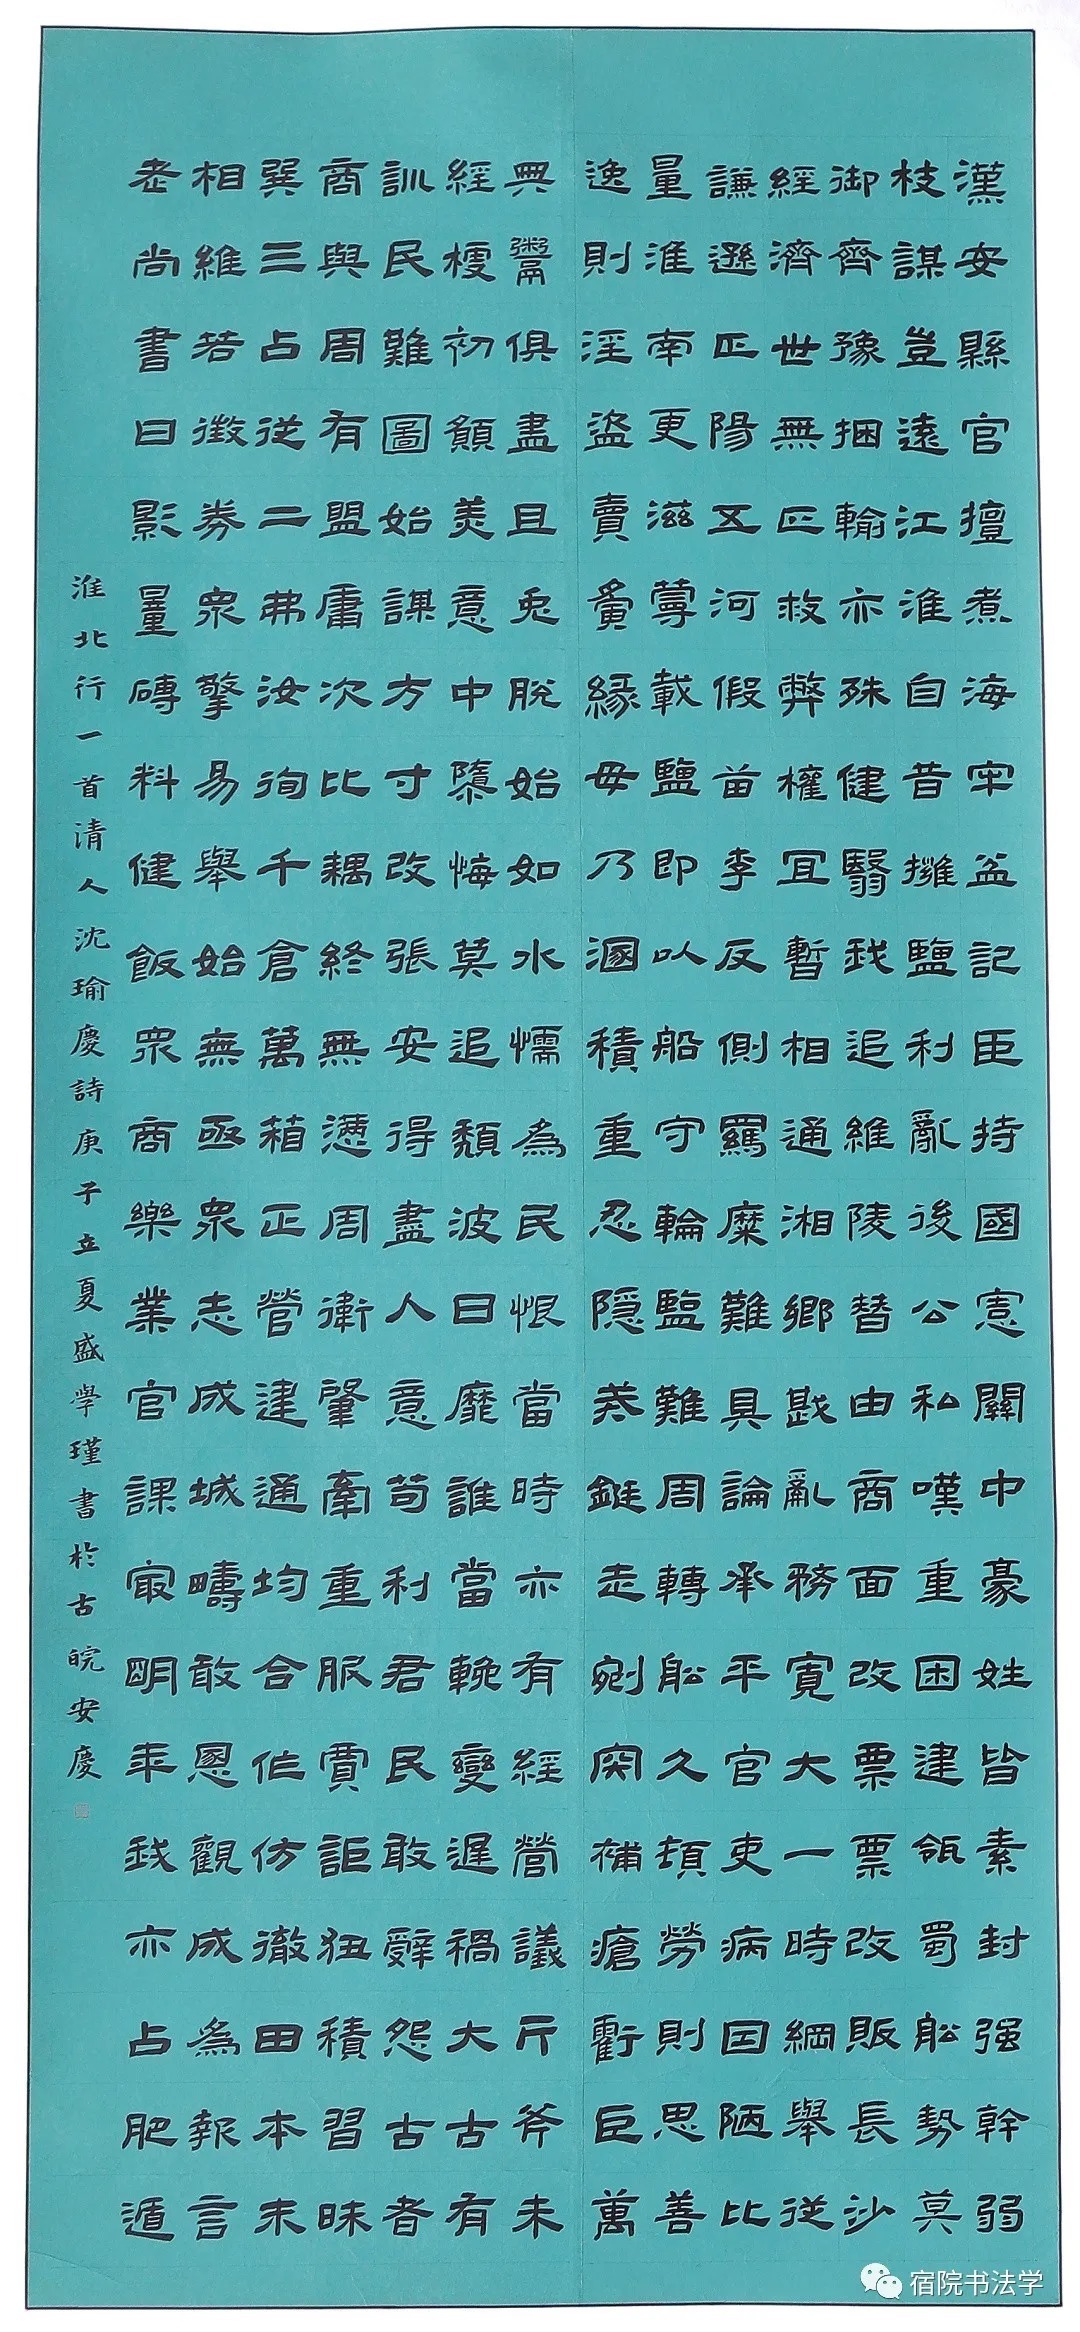 漢安縣官擅煮海牢盆記臣持國憲關中豪姓皆素封强幹弱
枝謀豈遠江淮自昔擁鹽利亂後公私嘆重困建瓴蜀船勢莫
御齊豫捆輸亦殊健翳我追維陵替由商面改票票改販長沙
經濟世無匹救弊權宜暫相通湘鄉戡亂務寬大一時綱舉從
謙遜正陽五河假苗李反側羈縻難具論承平官吏病因陋比
量淮南更滋蕚載鹽即以船守輪監難周轉船久頓勞則思善
逸則淫盜賣夤緣毋乃溷積重忍隱英鋌走剜肉補瘡虧巨萬
興鬻俱盡且兔脫始如水懦為民恨當時亦有經營議斤斧未
經榱初顛美意中隳悔莫追頹波日靡誰當輓變遲禍大古有
訓民難圖始謀方寸改張安得盡人意苟利君民敢辭怨古者
商與周有盟庸次比耦終無懣周衛肇牽重服賈詎狃積習昧
巽三占從二弗汝徇千倉萬箱正營建通均合作仿徹田本末
相維若徵券眾擎易舉始無亟眾志成城疇敢慁觀成為報言
老尚書曰影量磚料健飯眾商樂業官課最明年我亦占肥遁
淮北行一首清人沈瑜慶詩庚子立夏盛學瑾書於古皖安慶
宿院书法学